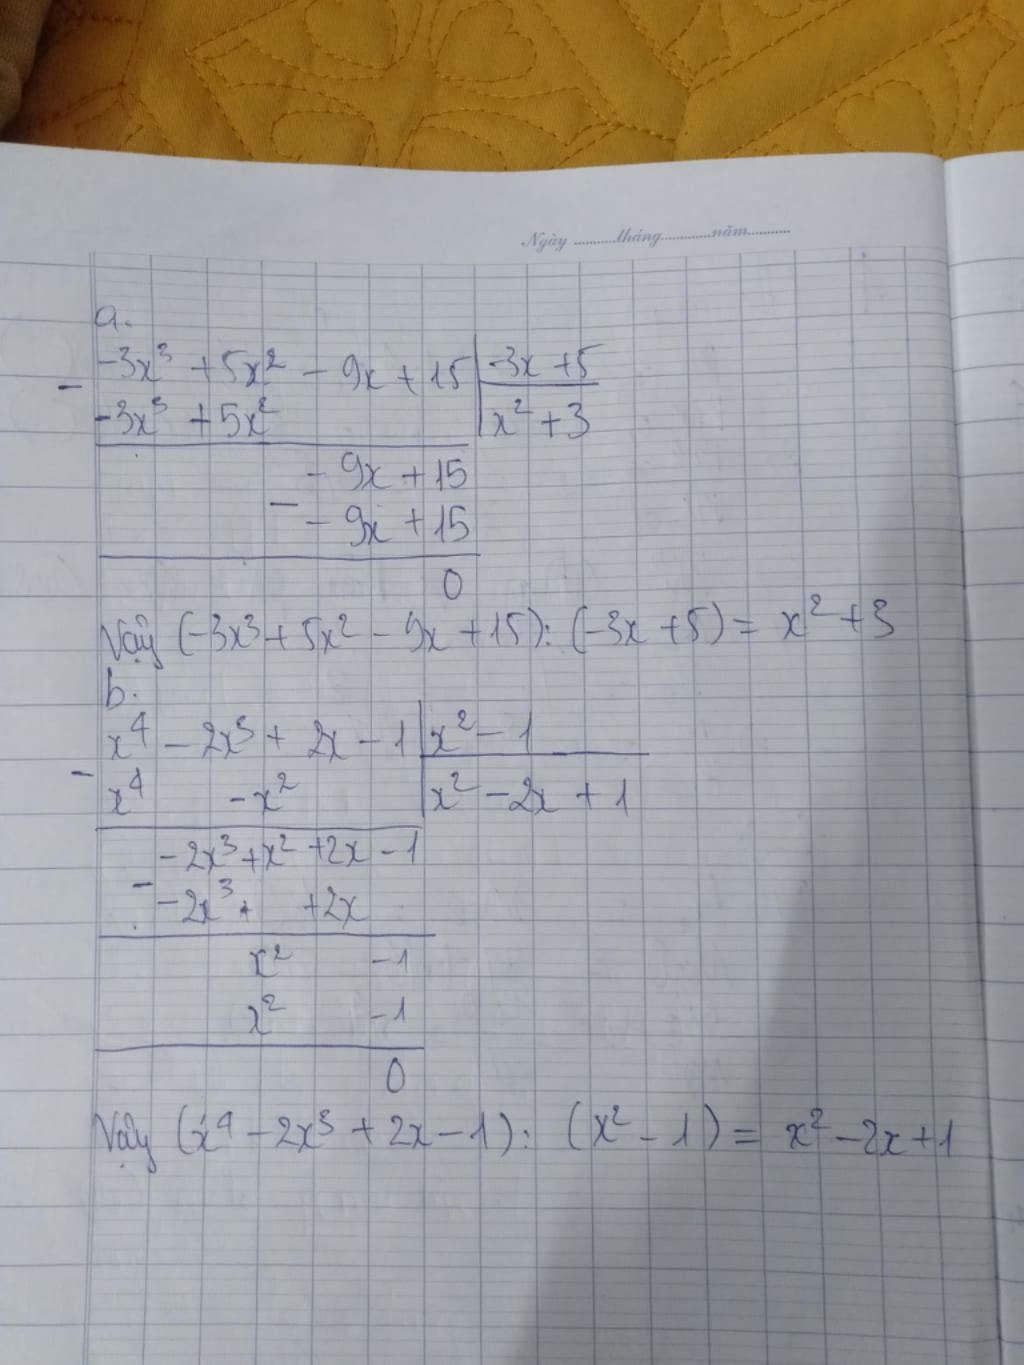 Ngày ..........tháng............năm..........
a.
-3x³ + 5x² - 9x + 15 | -3x + 5
-
-3x³ + 5x² | x² + 3
- 9x + 15
-
- 9x + 15
0
Vậy (-3x³ + 5x² - 9x + 15) : (-3x + 5) = x² + 3
b.
x⁴ - 2x³ + 2x - 1 | x² - 1
-
x⁴ - x² | x² - 2x + 1
- 2x³ + x² + 2x - 1
-
- 2x³ + + 2x
x² - 1
x² - 1
0
Vậy (x⁴ - 2x³ + 2x - 1) : (x² - 1) = x² - 2x + 1